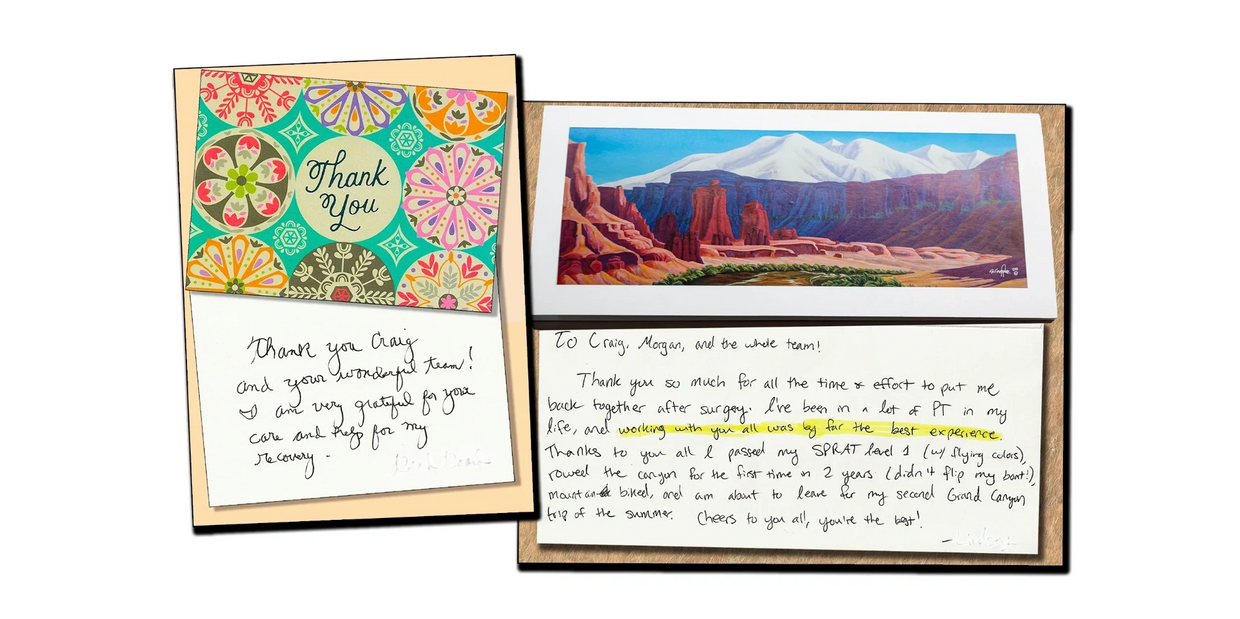 Thank
You
Thank you Craig
and your wonderful team!
I am very grateful for your
care and help for my
recovery.
To Craig, Morgan, and the whole team!
Thank you so much for all the time & effort to put me
back together after surgey. I've been in a lot of PT in my
life, and working with you all was by far the best experience.
Thanks to you all I passed my SPRAT level 1 (w/ flying colors),
rowed the canyon for the first time in 2 years (didn't flip my boat!),
mountain biked, and am about to leave for my second Grand Canyon
trip of the summer. Cheers to you all, you're the best!